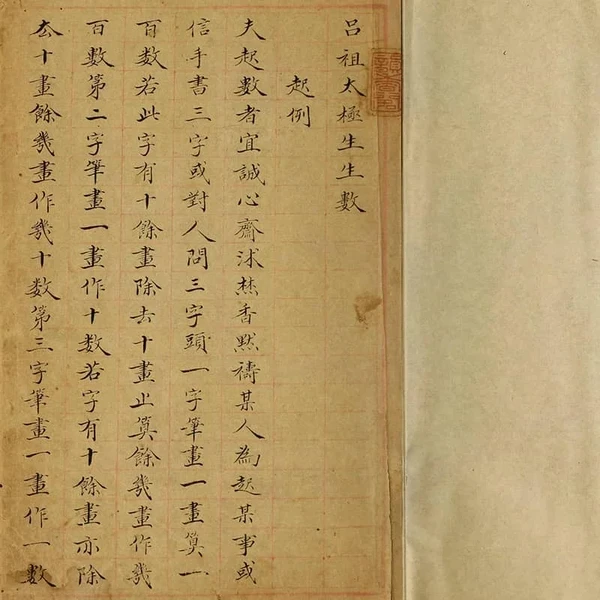 呂祖太極生生數
起例
夫起數者宜誠心齋沐焚香默禱某人為起某事或
信手書三字或對人問三字頭一字筆畫一畫算一
百数若此字有十餘畫除去十畫止算餘幾畫作幾
百數第二字筆畫一畫作十數若字有十餘畫亦除
去十畫餘幾畫作幾十数第三字筆畫一畫作一數